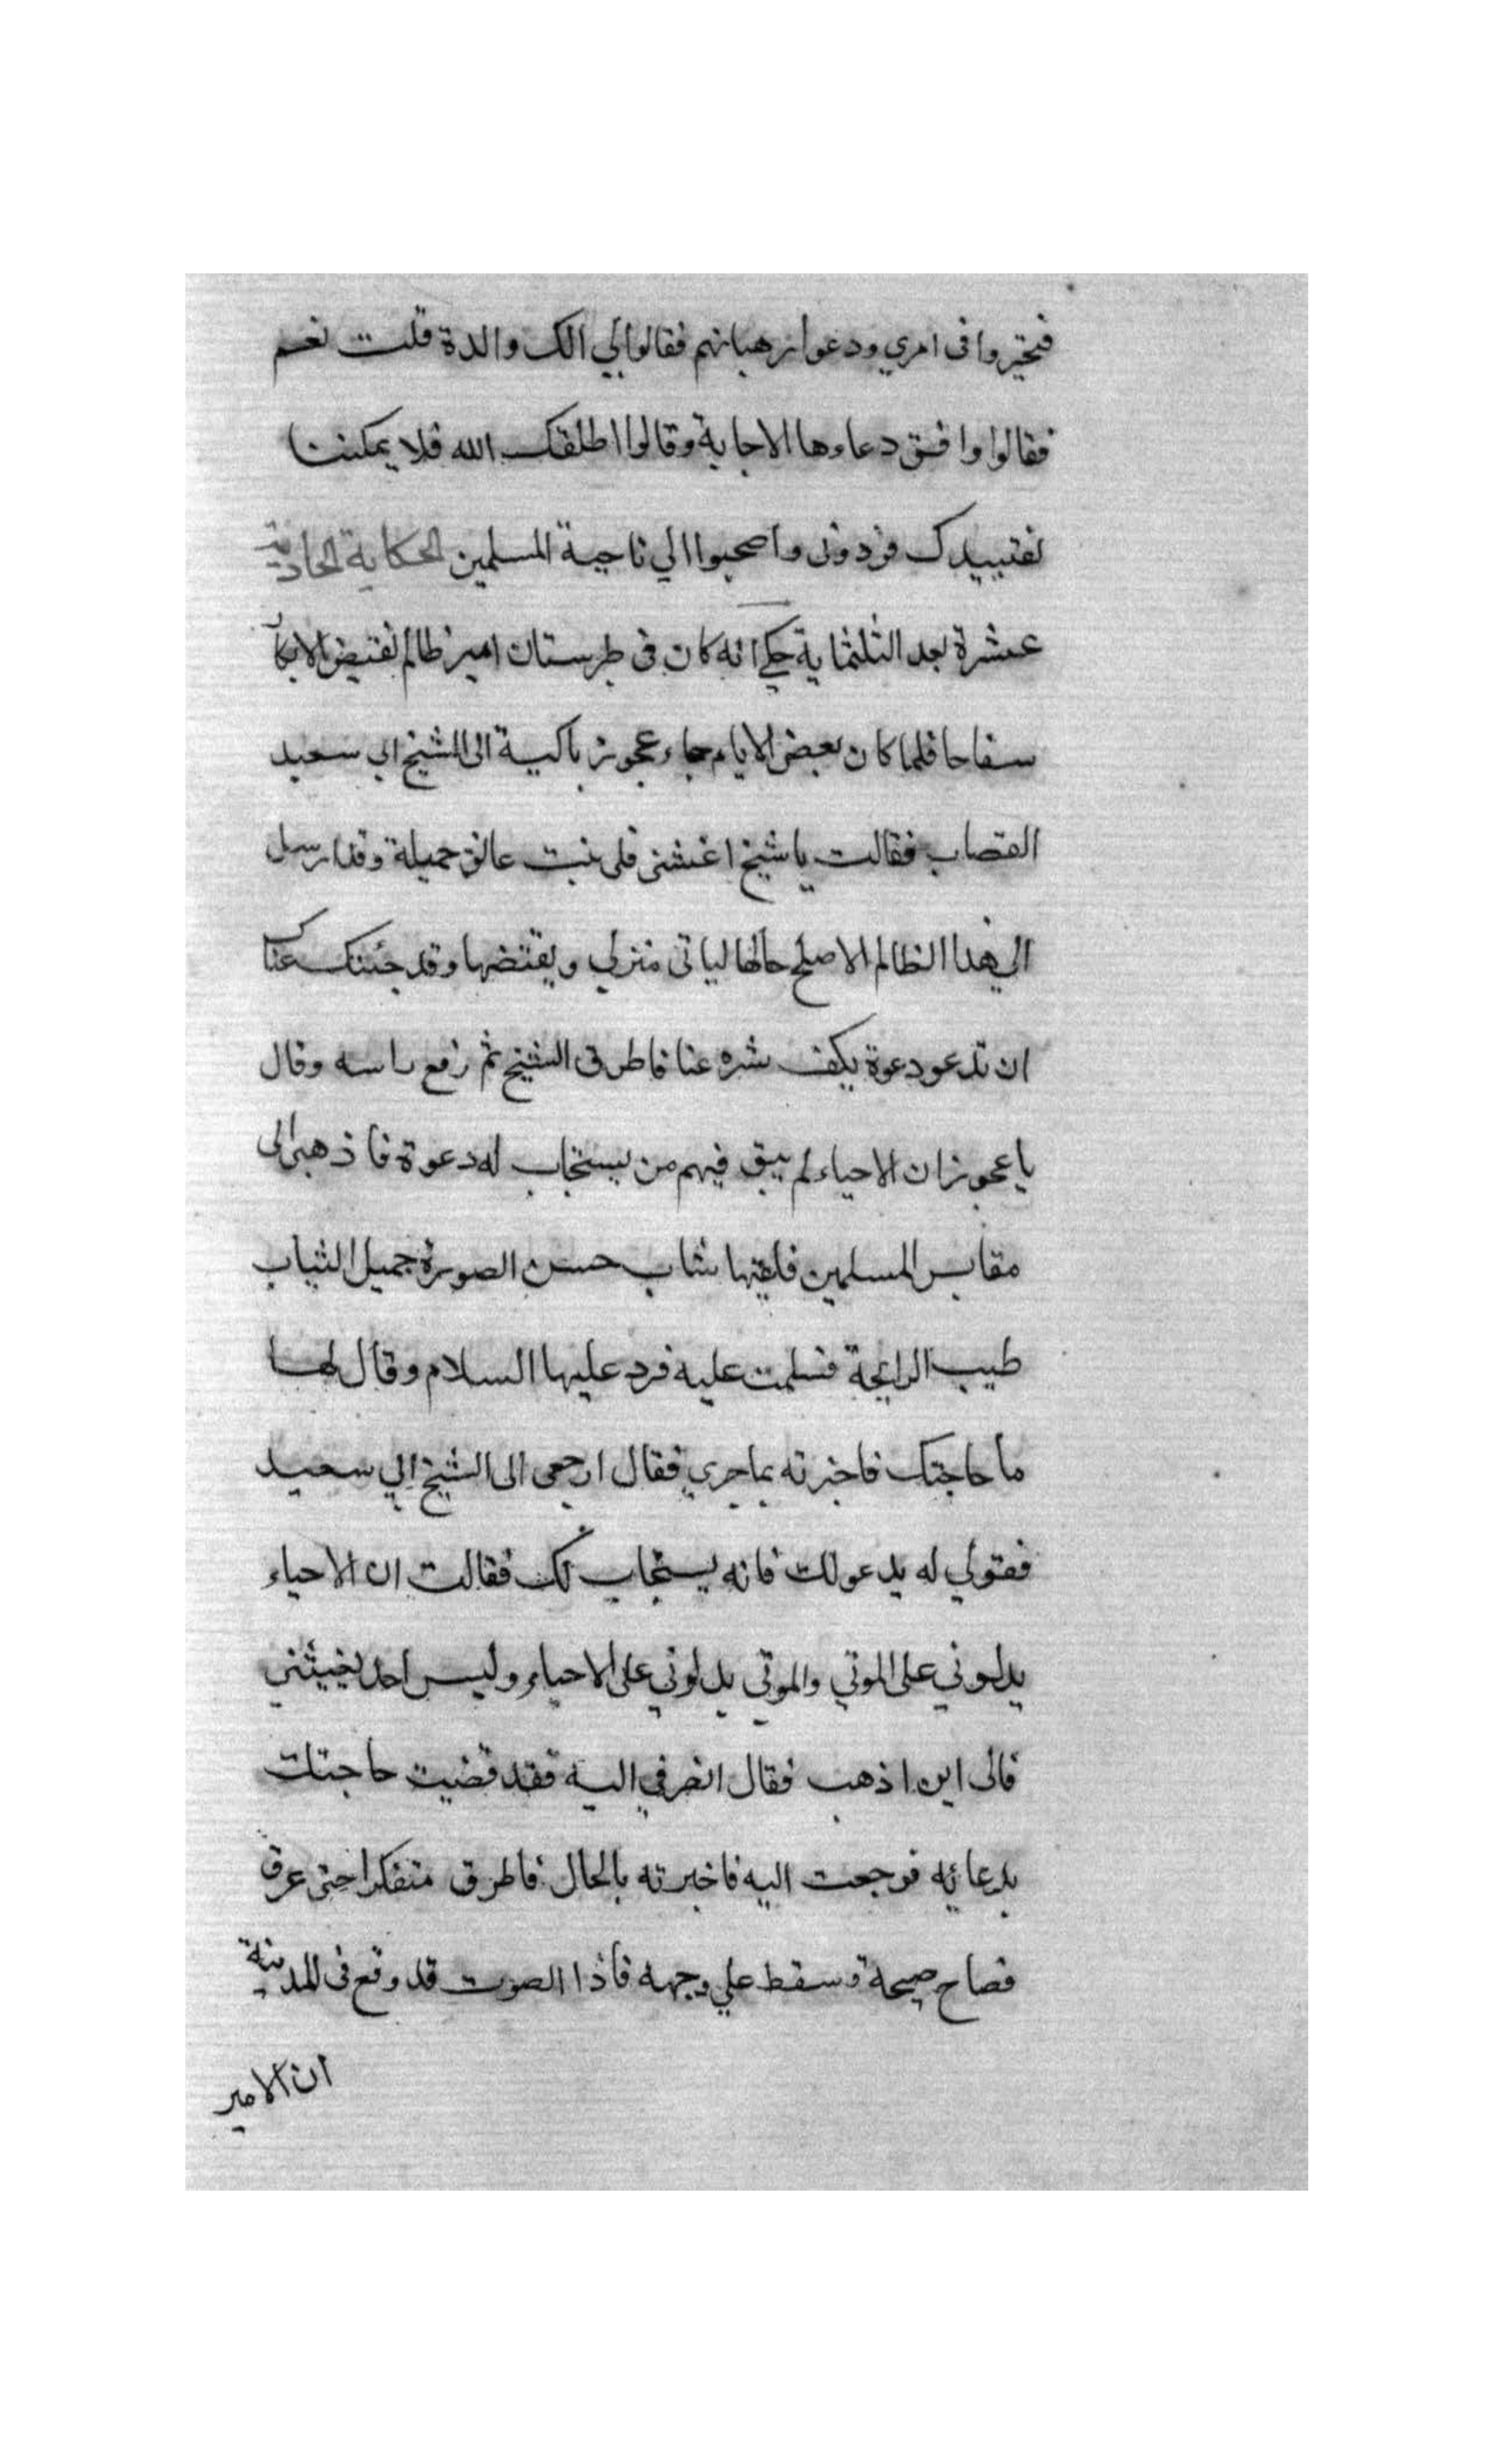 فتحيروا فى امري ودعوا رهبانهم فقالوا لي الك والدة قلت نعم
فقالوا وافق دعاءها الاجابة وقالوا اطلقك الله فلا يمكننا
تقييدك فزدونى واصحبوا الي ناحية المسلمين الحكاية الحادية
عشرة بعد الثلثماية حكي انه كان فى طبرستان امير ظالم يفتض الابكار
سفاحا فلما كان بعض الايام جاء عجوز باكية الى الشيخ ابي سعيد
القصاب فقالت يا شيخ اغثنى فلى بنت عاتق جميلة وقد ارسل
الي هذا الظالم الاصلح حالها لياتى منزلي ويفتضها وقد جئتك عساك
ان تدعو دعوة يكف شره عنا فاطرق الشيخ ثم رفع راسه وقال
يا عجوز ان الاحياء لم يبق فيهم من يستجاب له دعوة فاذهبى الى
مقابر المسلمين فلقيها شاب حسن الصورة جميل الثياب
طيب الرايحة فسلمت عليه فرد عليها السلام وقال لها
ما حاجتك فاخبرته بما جري فقال ارجعى الى الشيخ ابي سعيد
فقولي له يدعو لك فانه يستجاب لك فقالت ان الاحياء
يدلوني على الموتي والموتي يدلوني على الاحياء وليس احد يغيثني
فالى اين اذهب فقال انصرفي اليه فقد قضيت حاجتك
بدعائه فرجعت اليه فاخبرته بالحال فاطرق متفكرا حتى عرق
فصاح صيحة وسقط علي وجهه فاذا الصوت قد وقع فى المدينة
ان الامير